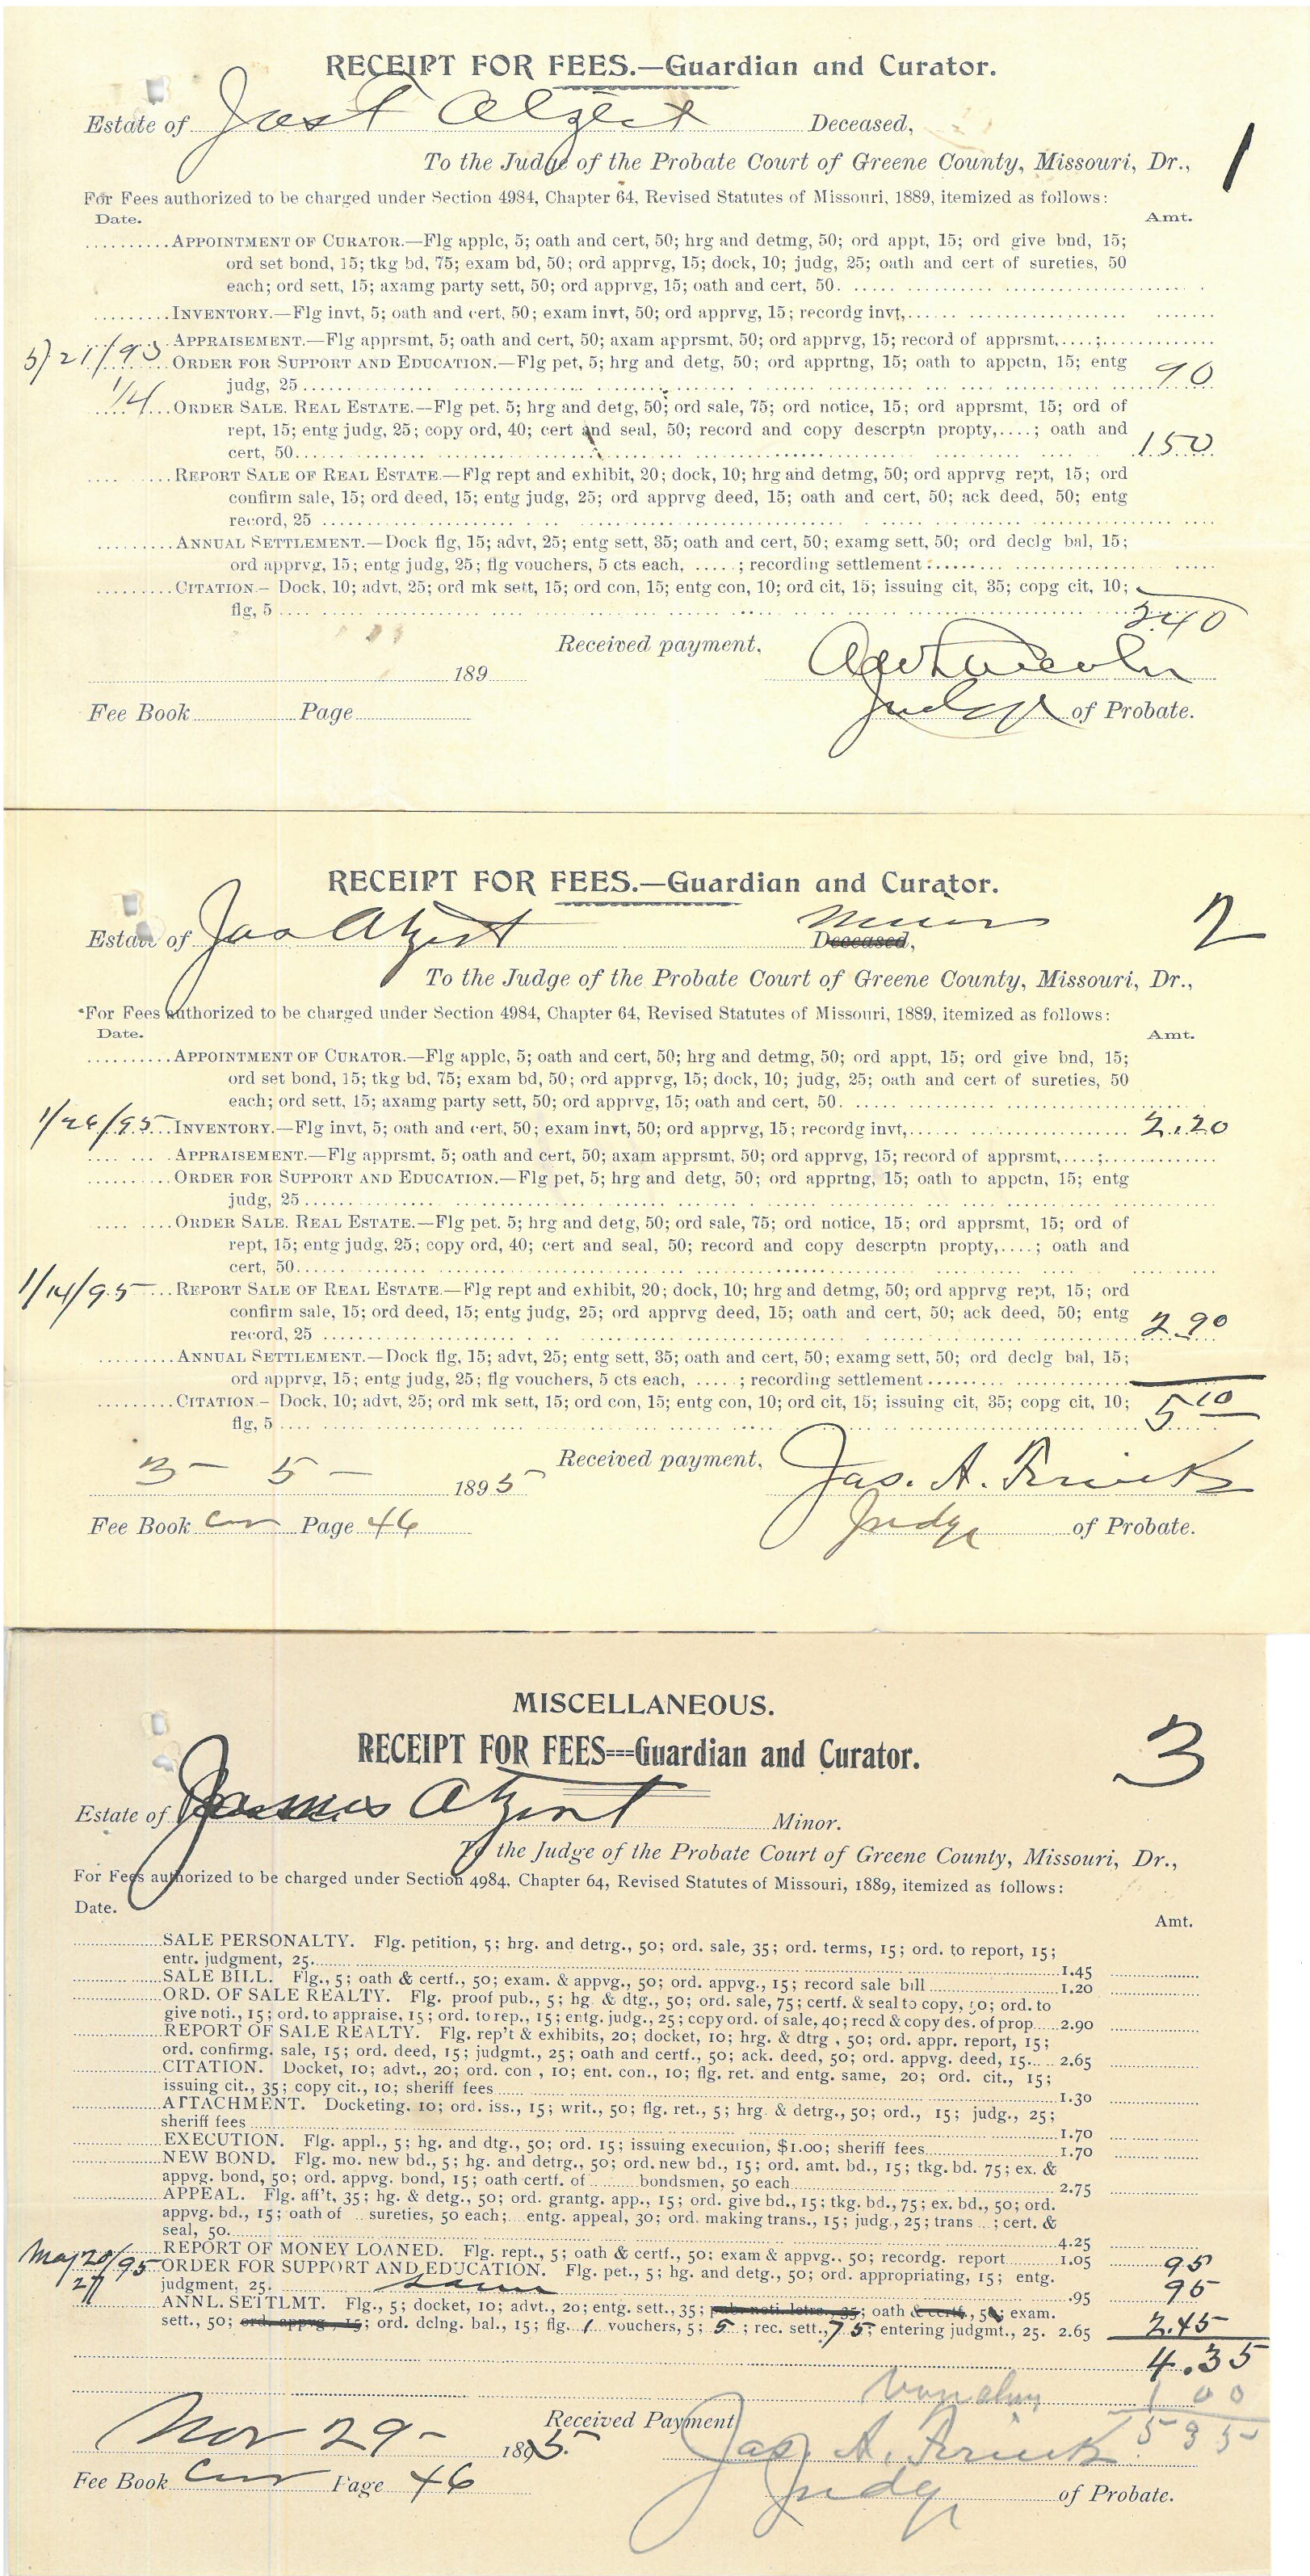 RECEIPT FOR FEES.—Guardian and Curator.
Estate of Jas Atzert Deceased,
To the Judge of the Probate Court of Greene County, Missouri, Dr.,
1
For Fees authorized to be charged under Section 4984, Chapter 64, Revised Statutes of Missouri, 1889, itemized as follows:
Date. Amt.
APPOINTMENT OF CURATOR.—Flg applc, 5; oath and cert, 50; hrg and detmg, 50; ord appt, 15; ord give bnd, 15;
ord set bond, 15; tkg bd, 75; exam bd, 50; ord apprvg, 15; dock, 10; judg, 25; oath and cert of sureties, 50
each; ord sett, 15; axamg party sett, 50; ord apprvg, 15; oath and cert, 50.
INVENTORY.—Flg invt, 5; oath and cert, 50; exam invt, 50; ord apprvg, 15; recordg invt,
APPRAISEMENT.—Flg apprsmt, 5; oath and cert, 50; axam apprsmt, 50; ord apprvg, 15; record of apprsmt,....;
5/21/93 ORDER FOR SUPPORT AND EDUCATION.—Flg pet, 5; hrg and detg, 50; ord apprtng, 15; oath to appctn, 15; entg
judg, 25 90
1/4 ORDER SALE. REAL ESTATE.—Flg pet. 5; hrg and detg, 50; ord sale, 75; ord notice, 15; ord apprsmt, 15; ord of
rept, 15; entg judg, 25; copy ord, 40; cert and seal, 50; record and copy descrptn propty,....; oath and
cert, 50 150
REPORT SALE OF REAL ESTATE.—Flg rept and exhibit, 20; dock, 10; hrg and detmg, 50; ord apprvg rept, 15; ord
confirm sale, 15; ord deed, 15; entg judg, 25; ord apprvg deed, 15; oath and cert, 50; ack deed, 50; entg
record, 25
ANNUAL SETTLEMENT.—Dock flg, 15; advt, 25; entg sett, 35; oath and cert, 50; examg sett, 50; ord declg bal, 15;
ord apprvg, 15; entg judg, 25; flg vouchers, 5 cts each, .....; recording settlement
CITATION.— Dock, 10; advt, 25; ord mk sett, 15; ord con, 15; entg con, 10; ord cit, 15; issuing cit, 35; copg cit, 10;
flg, 5 240
Received payment, Lincoln
189
Fee Book Page Judge of Probate.
RECEIPT FOR FEES.—Guardian and Curator.
Estate of Jas Atzert Deceased, Minor
2
To the Judge of the Probate Court of Greene County, Missouri, Dr.,
For Fees authorized to be charged under Section 4984, Chapter 64, Revised Statutes of Missouri, 1889, itemized as follows:
Date. Amt.
APPOINTMENT OF CURATOR.—Flg applc, 5; oath and cert, 50; hrg and detmg, 50; ord appt, 15; ord give bnd, 15;
ord set bond, 15; tkg bd, 75; exam bd, 50; ord apprvg, 15; dock, 10; judg, 25; oath and cert of sureties, 50
each; ord sett, 15; axamg party sett, 50; ord apprvg, 15; oath and cert, 50.
1/26/95 INVENTORY.—Flg invt, 5; oath and cert, 50; exam invt, 50; ord apprvg, 15; recordg invt, 2.20
APPRAISEMENT.—Flg apprsmt, 5; oath and cert, 50; axam apprsmt, 50; ord apprvg, 15; record of apprsmt,....;
ORDER FOR SUPPORT AND EDUCATION.—Flg pet, 5; hrg and detg, 50; ord apprtng, 15; oath to appctn, 15; entg
judg, 25
ORDER SALE. REAL ESTATE.—Flg pet. 5; hrg and detg, 50; ord sale, 75; ord notice, 15; ord apprsmt, 15; ord of
rept, 15; entg judg, 25; copy ord, 40; cert and seal, 50; record and copy descrptn propty,....; oath and
cert, 50
1/14/95 REPORT SALE OF REAL ESTATE.—Flg rept and exhibit, 20; dock, 10; hrg and detmg, 50; ord apprvg rept, 15; ord
confirm sale, 15; ord deed, 15; entg judg, 25; ord apprvg deed, 15; oath and cert, 50; ack deed, 50; entg
record, 25 2.90
ANNUAL SETTLEMENT.—Dock flg, 15; advt, 25; entg sett, 35; oath and cert, 50; examg sett, 50; ord declg bal, 15;
ord apprvg, 15; entg judg, 25; flg vouchers, 5 cts each, .....; recording settlement
CITATION.— Dock, 10; advt, 25; ord mk sett, 15; ord con, 15; entg con, 10; ord cit, 15; issuing cit, 35; copg cit, 10;
flg, 5 5 10
Received payment, Jas. A. Frink
3 - 5 - 1895
Fee Book Cur Page 46 Judge of Probate.
MISCELLANEOUS.
RECEIPT FOR FEES---Guardian and Curator.
3
Estate of James Atzert Minor.
To the Judge of the Probate Court of Greene County, Missouri, Dr.,
For Fees authorized to be charged under Section 4984, Chapter 64, Revised Statutes of Missouri, 1889, itemized as follows:
Date.
Amt.
SALE PERSONALTY. Flg. petition, 5; hrg. and detrg., 50; ord. sale, 35; ord. terms, 15; ord. to report, 15;
entr. judgment, 25. 1.45
SALE BILL. Flg., 5; oath & certf., 50; exam. & appvg., 50; ord. appvg., 15; record sale bill 1.20
ORD. OF SALE REALTY. Flg. proof pub., 5; hg. & dtg., 50; ord. sale, 75; certf. & seal to copy, 50; ord. to
give noti., 15; ord. to appraise, 15; ord. to rep., 15; entg. judg., 25; copy ord. of sale, 40; recd & copy des. of prop 2.90
REPORT OF SALE REALTY. Flg. rep't & exhibits, 20; docket, 10; hrg. & dtrg, 50; ord. appr. report, 15;
ord. confirmg. sale, 15; ord. deed, 15; judgmt., 25; oath and certf., 50; ack. deed, 50; ord. appvg. deed, 15 2.65
CITATION. Docket, 10; advt., 20; ord. con, 10; ent. con., 10; flg. ret. and entg. same, 20; ord. cit., 15;
issuing cit., 35; copy cit., 10; sheriff fees 1.30
ATTACHMENT. Docketing. 10; ord. iss., 15; writ., 50; flg. ret., 5; hrg. & detrg., 50; ord., 15; judg., 25;
sheriff fees 1.70
EXECUTION. Flg. appl., 5; hg. and dtg., 50; ord. 15; issuing execution, $1.00; sheriff fees 1.70
NEW BOND. Flg. mo. new bd., 5; hg. and detrg., 50; ord. new bd., 15; ord. amt. bd., 15; tkg. bd. 75; ex. &
appvg. bond, 50; ord. appvg. bond, 15; oath certf. of ........ bondsmen, 50 each 2.75
APPEAL. Flg. aff't, 35; hg. & detg., 50; ord. grantg. app., 15; ord. give bd., 15; tkg. bd., 75; ex. bd., 50; ord.
appvg. bd., 15; oath of .. sureties, 50 each; entg. appeal, 30; ord. making trans., 15; judg., 25; trans...; cert. &
seal, 50. 4.25
REPORT OF MONEY LOANED. Flg. rept., 5; oath & certf., 50; exam & appvg., 50; recordg. report 1.05
May 20/95 ORDER FOR SUPPORT AND EDUCATION. Flg. pet., 5; hg. and detg., 50; ord. appropriating, 15; entg. 95
27 judgment, 25. same .95 95
ANNL. SETTLMT. Flg., 5; docket, 10; advt., 20; entg. sett., 35; pub. noti. letrs., 35; oath & certf., 50; exam.
sett., 50; ord. appvg., 15; ord. delng. bal., 15; flg. 1 vouchers, 5; 5; rec. sett., 75; entering judgmt., 25. 2.65 2.45
4.35
1 00
5 35
Received Payment, Jas. A. Frink
Nov 29 - 1895.
Fee Book Cur Page 46 Judge of Probate.